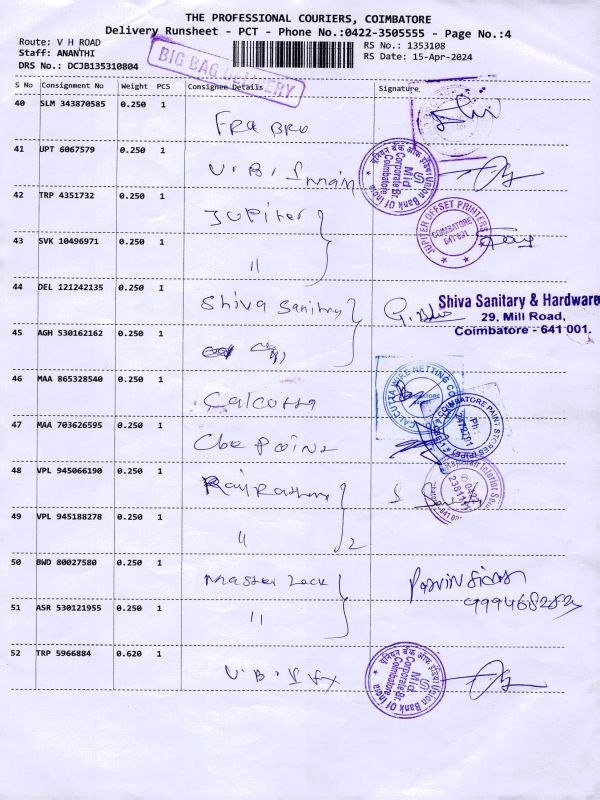 THE PROFESSIONAL COURIERS, COIMBATORE
Delivery Runsheet - PCT - Phone No.:0422-3505555 - Page No.:4
Route: V H ROAD
Staff: ANANTHI
DRS No.: DCJB135310804
BIG BAG DELIVERY
RS No.: 1353108
RS Date: 15-Apr-2024
S No Consignment No Weight PCS Consignee Details Signature
40 SLM 343870585 0.250 1
41 UPT 6067579 0.250 1 U.B.I main
यूनियन बैंक ऑफ इंडिया Union Bank Of India
Mid Corporate Br. Coimbatore
42 TRP 4351732 0.250 1 Jupiter
JUPITER OFFSET PRINTERS
COIMBATORE
641 001
43 SVK 10496971 0.250 1 "
44 DEL 121242135 0.250 1 Shiva Sanitary
Shiva Sanitary & Hardware
29, Mill Road,
Coimbatore - 641 001.
45 AGH 530162162 0.250 1
46 MAA 865328540 0.250 1 Calcutta
CALCUTTA WIRE NETTING CO
47 MAA 703626595 0.250 1 Cbe Point
COIMBATORE PAINT STORES
48 VPL 945066190 0.250 1
49 VPL 945188278 0.250 1 " 2
50 BWD 80027580 0.250 1 Master Lock
51 ASR 530121955 0.250 1 "
52 TRP 5966884 0.620 1
यूनियन बैंक ऑफ इंडिया Union Bank Of India
Mid Corporate Br. Coimbatore